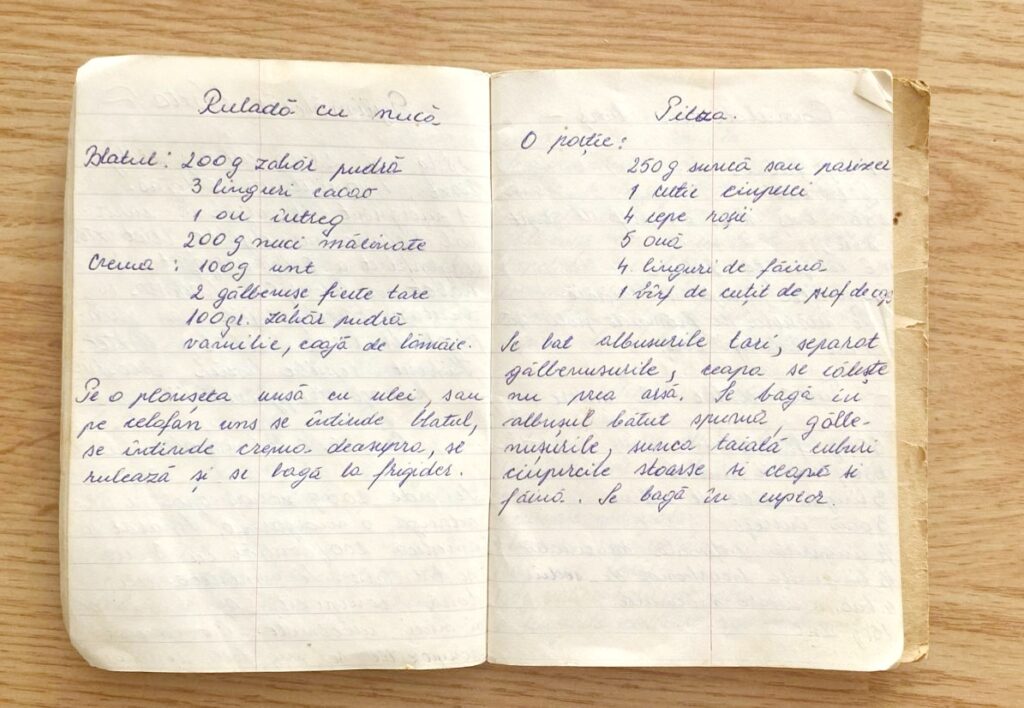 Ruladă cu nucă
Blatul: 200g zahăr pudră
3 linguri cacao
1 ou întreg
200g nuci măcinate
Crema: 100g unt
2 gălbenușe fierte tare
100gr. zahăr pudră
vanilie, coajă de lămâie.
Pe o planșeta unsă cu ulei, sau
pe celofan uns se întinde blatul,
se întinde crema deasupra, se
rulează și se bagă la frigider.
Pitza.
O porție:
250g suncă sau parizer
1 cutie ciuperci
4 cepe roșii
5 ouă
4 linguri de făină
1 vîrf de cuțit de praf de cop
Se bat albusurile tari, separat
gălbenusurile, ceapa se călește
nu prea arsă. Se bagă în
albusul bătut spumă, gălbe-
nușurile, sunca taiată cuburi
ciupercile stoarse si ceapă si
făină. Se bagă în cuptor.